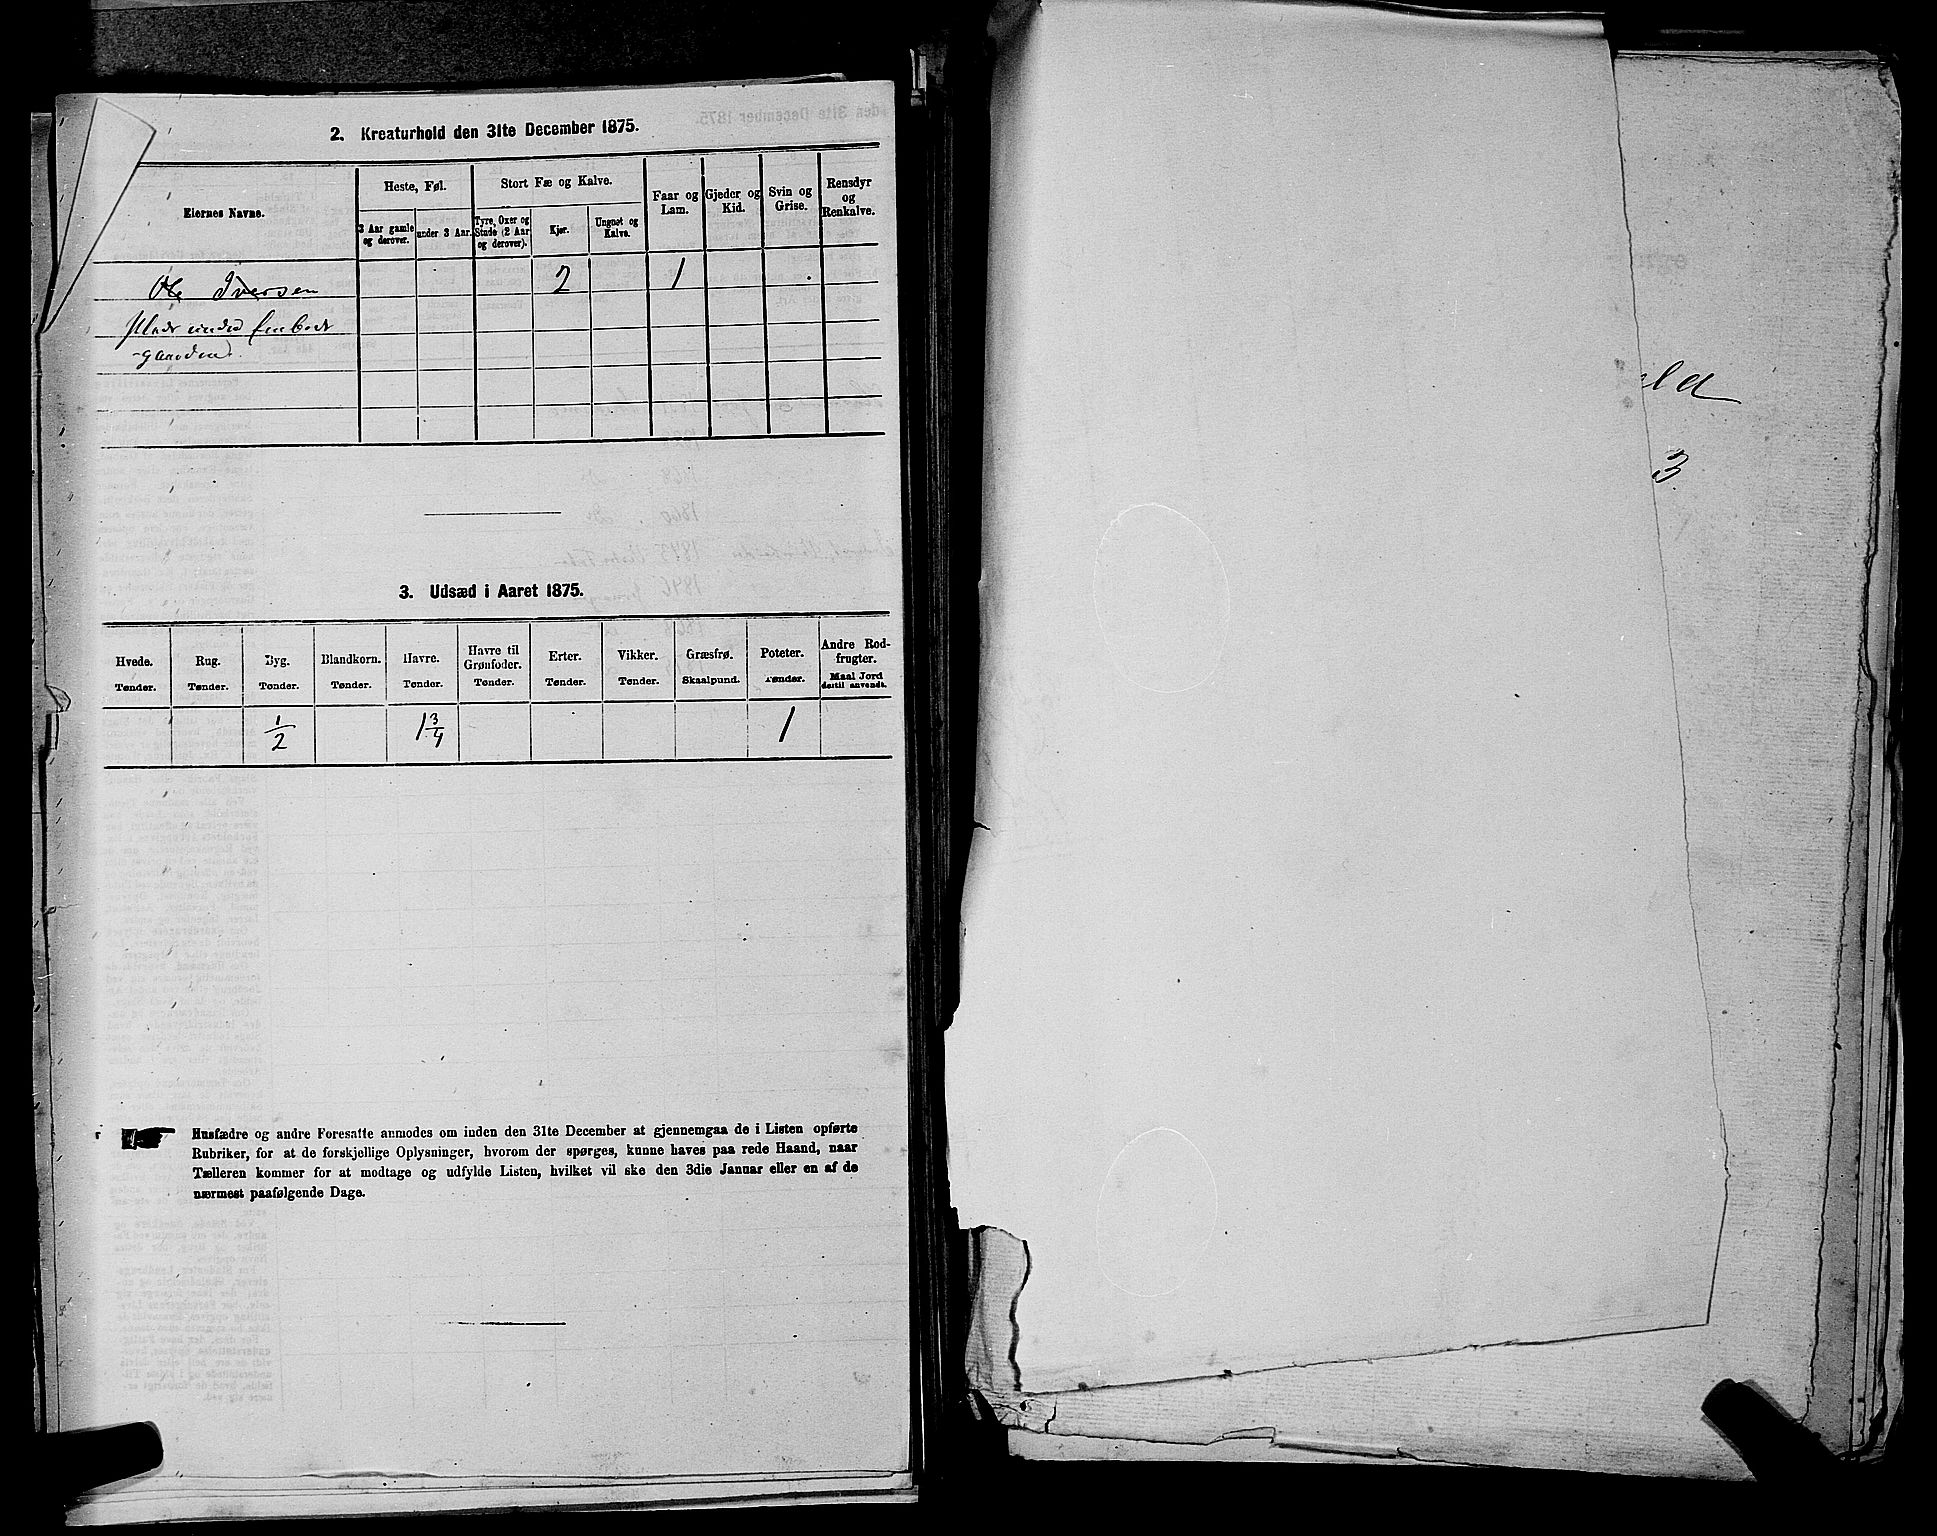 2. Kreaturhold den 31te December 1875.
Eiernes Navne. Heste, Føl. Stort Fæ og Kalve. Faar og Lam. Gjeder og Kid. Svin og Grise. Rensdyr og Renkalve.
3 Aar gamle og derover. under 3 Aar. Tyre, Oxer og Stude (2 Aar og derover). Kjør. Ungnøt og Kalve.
Ole Iversen 2 1
Plads under
gaarden.
3. Udsæd i Aaret 1875.
Hvede. Rug. Byg. Blandkorn. Havre. Havre til Grønfoder. Erter. Vikker. Græsfrø. Poteter. Andre Rodfrugter.
Tønder. Tønder. Tønder. Tønder. Tønder. Tønder. Tønder. Tønder. Skaalpund. Tønder. Maal Jord dertil anvendt.
1/2 1 3/4 1
Husfædre og andre Foresatte anmodes om inden den 31te December at gjennemgaa de i Listen opførte
Rubriker, for at de forskjellige Oplysninger, hvorom der spørges, kunne haves paa rede Haand, naar
Tælleren kommer for at modtage og udfylde Listen, hvilket vil ske den 3die Januar eller en af de
nærmest paafølgende Dage.
3